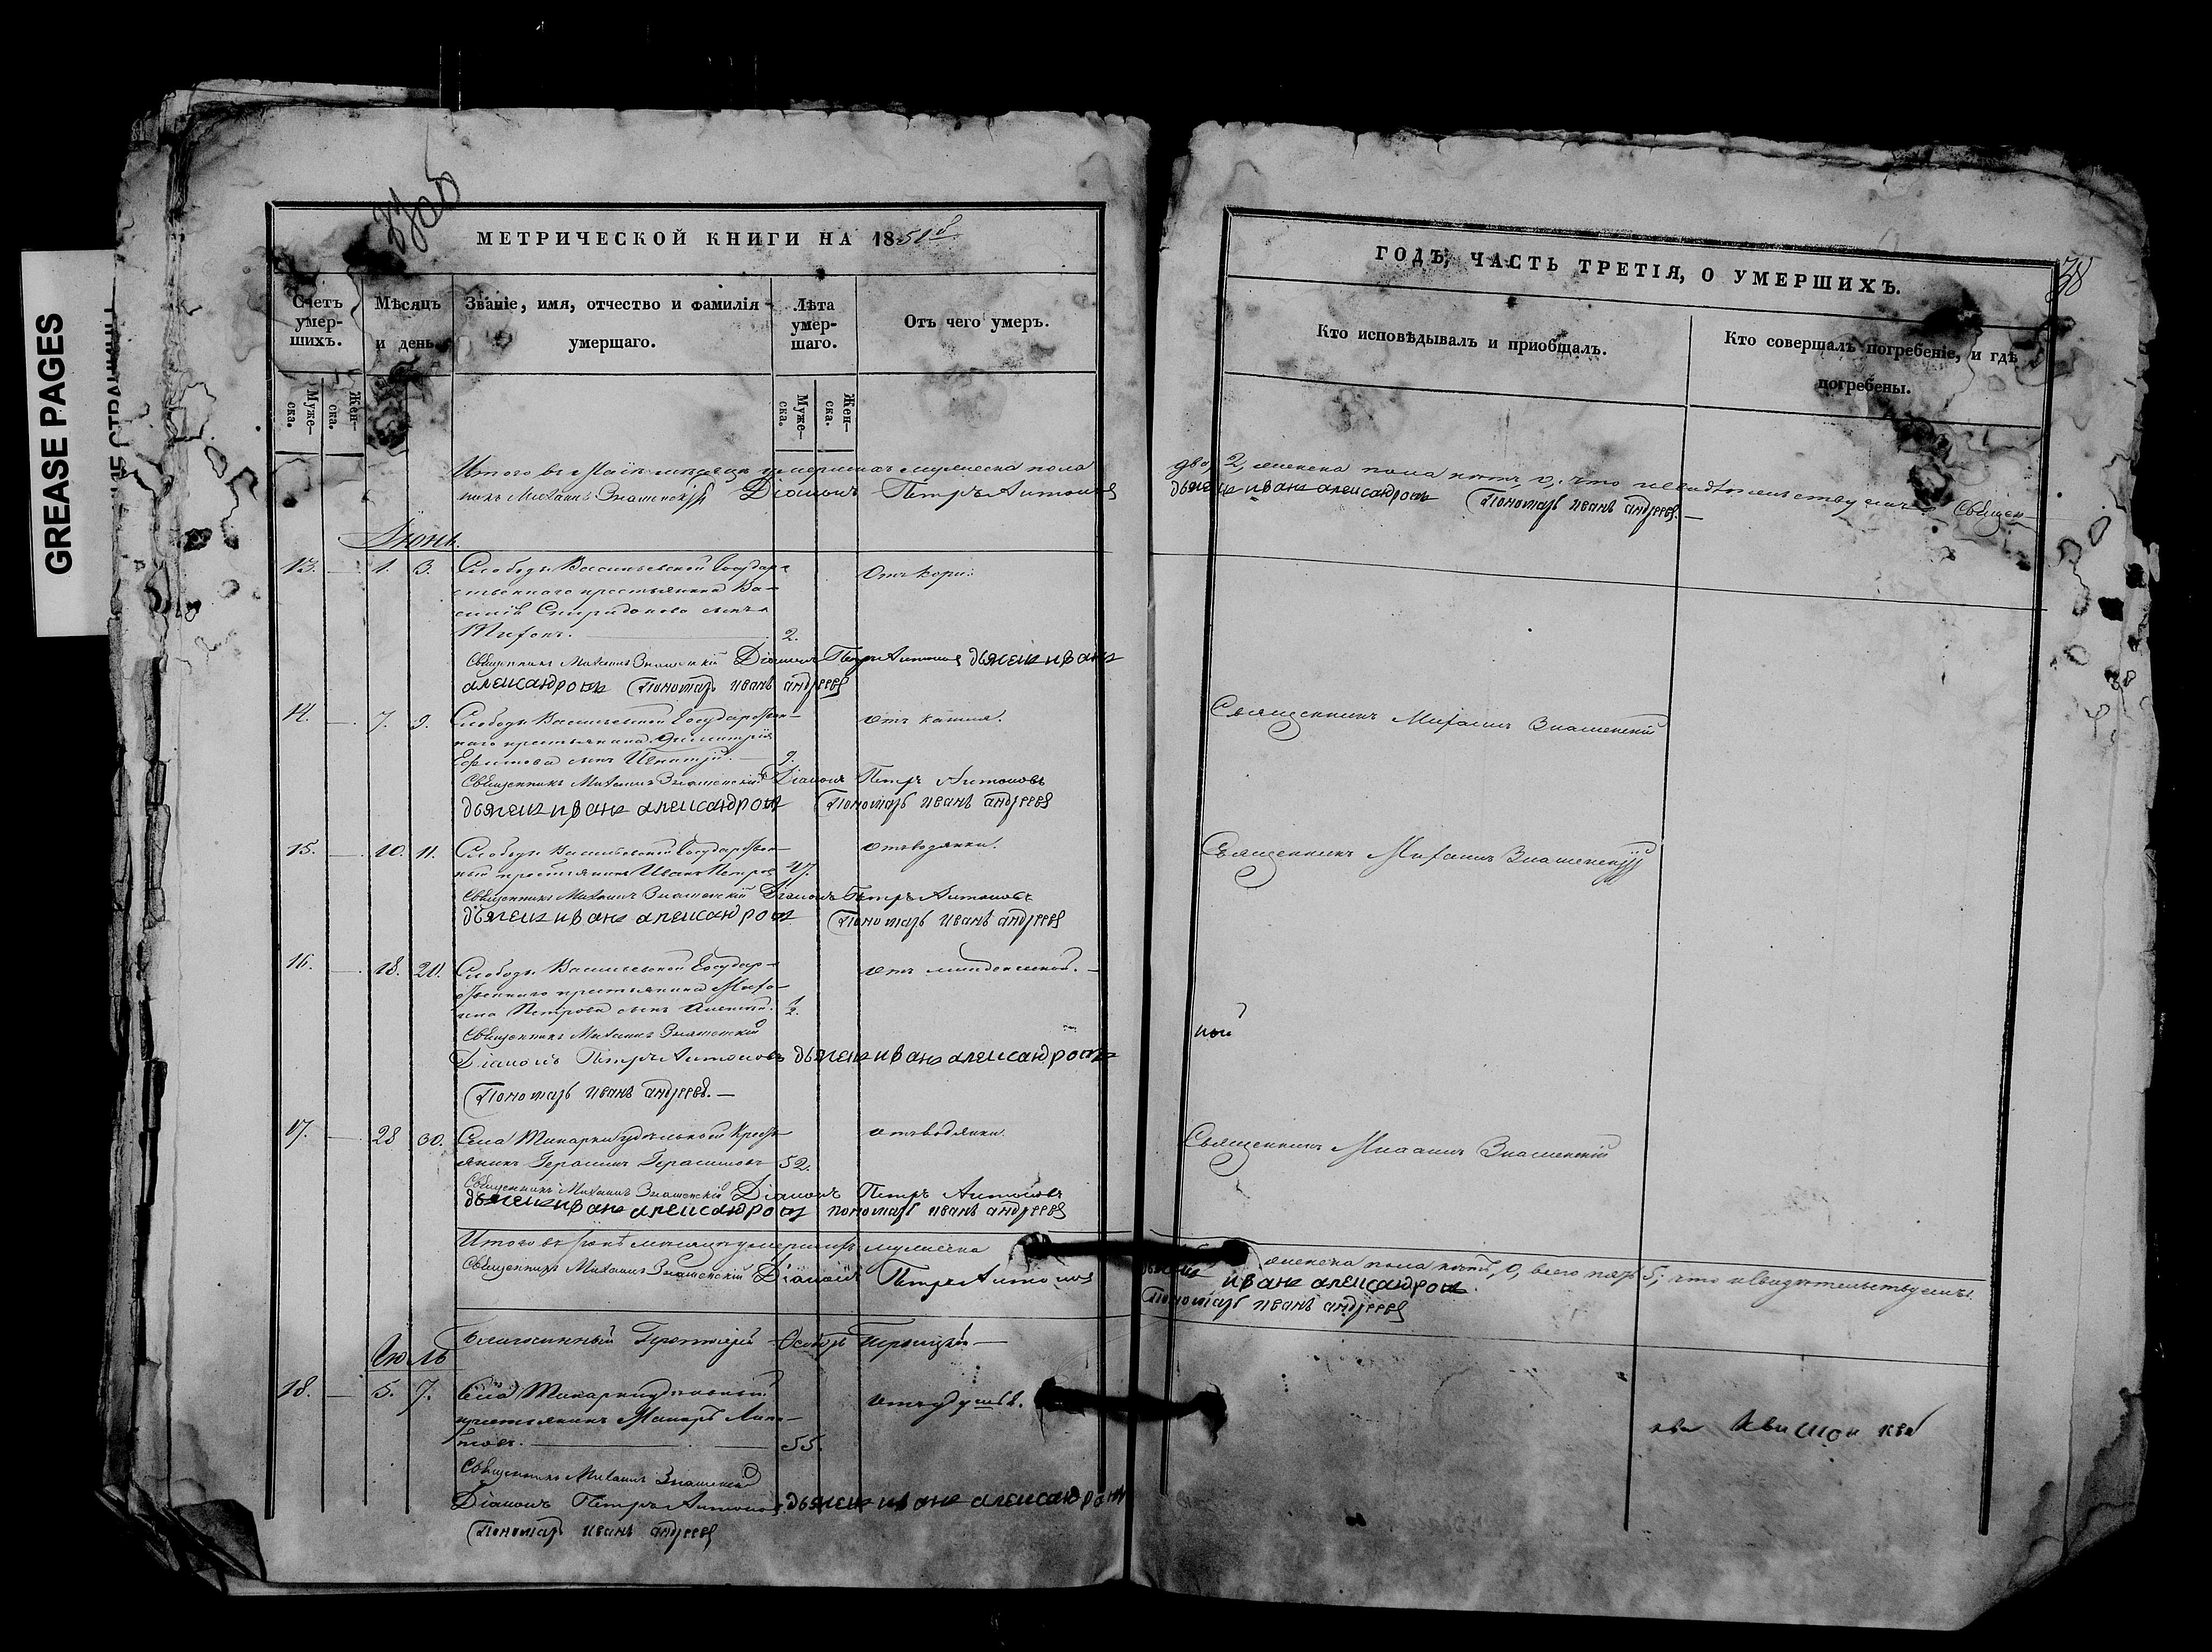 GREASE PAGES
МЕТРИЧЕСКОЙ КНИГИ НА 1851й
Счетъ умер-шихъ.
Мѣсяцъ и день
Званіе, имя, отчество и фамилія умершаго.
Лѣта умер-шаго.
Отъ чего умеръ.
Муже-ска.
Жен-ска.
Муже-ска.
Жен-ска.
Итого въ Маіѣ мѣсяцѣ умершихъ мужеска пола
никъ Михаилъ Знаменскій Діаконъ Петръ Антоновъ
Іюнь.
13. — 1. 3. Слободы Васильевской Государ-
ственнаго крестьянина Ва-
силія Спиридонова сынъ
Тихонъ. 2.
Отъ кори.
Священникъ Михаилъ Знаменскій Діаконъ Петръ Антоновъ дьячекъ иванъ
александровъ Пономарь иванъ андреевъ
14. — 7. 9. Слободы Васильевской Государствен-
наго крестьянина Димитрія
сынъ Игнатій. 9.
отъ кашля.
Священникъ Михаилъ Знаменскій Діаконъ Петръ Антоновъ
дьячекъ иванъ александровъ Пономарь иванъ андреевъ
15. — 10. 11. Слободы Васильевской Государствен-
ный крестьянинъ Иванъ Петровъ 47.
отъ водянки.
Священникъ Михаилъ Знаменскій Діаконъ Петръ Антоновъ
дьячекъ иванъ александровъ Пономарь иванъ андреевъ
16. — 18. 20. Слободы Васильевской Государ-
ственнаго крестьянина Миха-
ила Петрова сынъ Алексѣй. 1/2.
отъ младенческой. —
Священникъ Михаилъ Знаменскій
Діаконъ Петръ Антоновъ дьячекъ иванъ александровъ
Пономарь иванъ андреевъ. —
17. — 28 30. Села удѣльный Кресть-
янинъ Герасимъ Герасимовъ 52.
отъ водянки.
Священникъ Михаилъ Знаменскій Діаконъ Петръ Антоновъ
дьячекъ иванъ александровъ пономарь иванъ андреевъ
Итого въ Іюнѣ мѣсяцѣ умершихъ мужеска
Священникъ Михаилъ Знаменскій Діаконъ Петръ Антоновъ
Благочинный
Іюль
18. — 5. 7. Села удѣльный
крестьянинъ Макаръ
55.
Священникъ Михаилъ Знаменскій
Діаконъ Петръ Антоновъ дьячекъ иванъ александровъ
Пономарь иванъ андреевъ
38
ГОДЪ, ЧАСТЬ ТРЕТІЯ, О УМЕРШИХЪ.
Кто исповѣдывалъ и пріобщалъ.
Кто совершалъ погребеніе, и гдѣ погребены.
два, 2, женска пола нѣтъ, 0, что и свидѣтельствуемъ Священ-
дьячекъ иванъ александровъ Пономарь иванъ андреевъ. —
Священникъ Михаилъ Знаменскій
Священникъ Михаилъ Знаменскій
Священникъ Михаилъ Знаменскій
женска пола нѣтъ, 0, всего пять 5; что и свидѣтельствуемъ.
дьячекъ иванъ александровъ.
Пономарь иванъ андреевъ